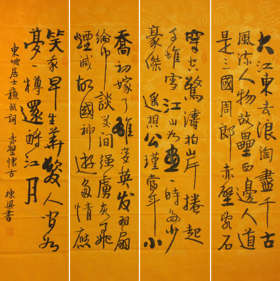 大江東去浪淘盡千古
風流人物故壘西邊人道
是三國周郎赤壁亂石
穿空驚濤拍岸捲起
千堆雪江山如畫一時多少
豪傑遙想公瑾當年小
喬初嫁了雄姿英發羽扇
綸巾談笑間強虜灰飛
煙滅故國神遊多情應
笑我早生華髮人間如
夢一樽還酹江月
東坡居士 詞 赤壁懷古 書